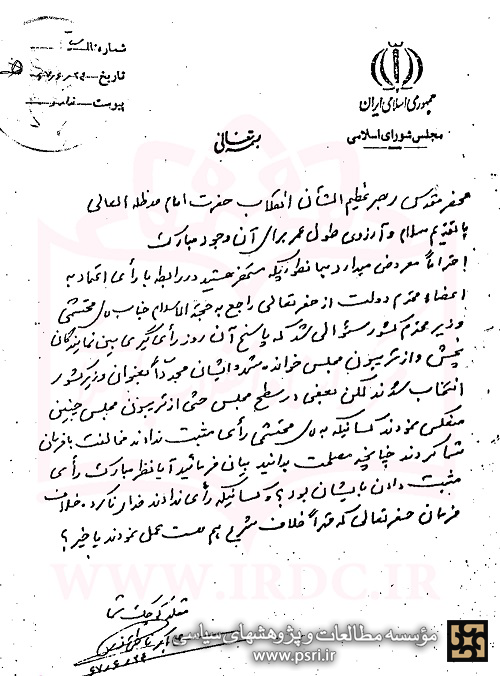 جمهوری اسلامی ایران
مجلس شورای اسلامی
شماره
تاریخ
پیوست
بسمه تعالی
محضر مقدس رهبر عظیم الشأن انقلاب حضرت امام مدظله العالی
با تقدیم سلام و آرزوی طول عمر برای آن وجود مبارک
احتراماً معروض میدارد همانطوریکه مستحضر هستید در رابطه با رأی اعتماد به
اعضاء محترم دولت از حضرتعالی راجع به حجة الاسلام جناب آقای محتشمی
وزیر محترم کشور سؤالی شد که پاسخ آن روز رأی گیری بین نمایندگان
پخش و از تریبون مجلس خوانده شد و ایشان مجدداً بعنوان وزیر کشور
انتخاب شدند لکن بعضی در سطح مجلس حتی از تریبون مجلس چنین
منعکس نمودند کسانیکه به آقای محتشمی رأی مثبت ندادند مخالفت با فرمان
شما کردند چنانچه مصلحت بدانید بیان فرمائید آیا نظر مبارک رأی
مثبت دادن بایشان بود؟ و کسانیکه رأی ندادند خدای ناکرده خلاف
فرمان حضرتعالی که قهراً خلاف شرع هم هست عمل نمودند یا خیر؟
مقلد کوچک شما
۶۷/۶/۲۹
WWW.IRDC.IR
مؤسسه مطالعات و پژوهشهای سیاسی
www.psri.ir